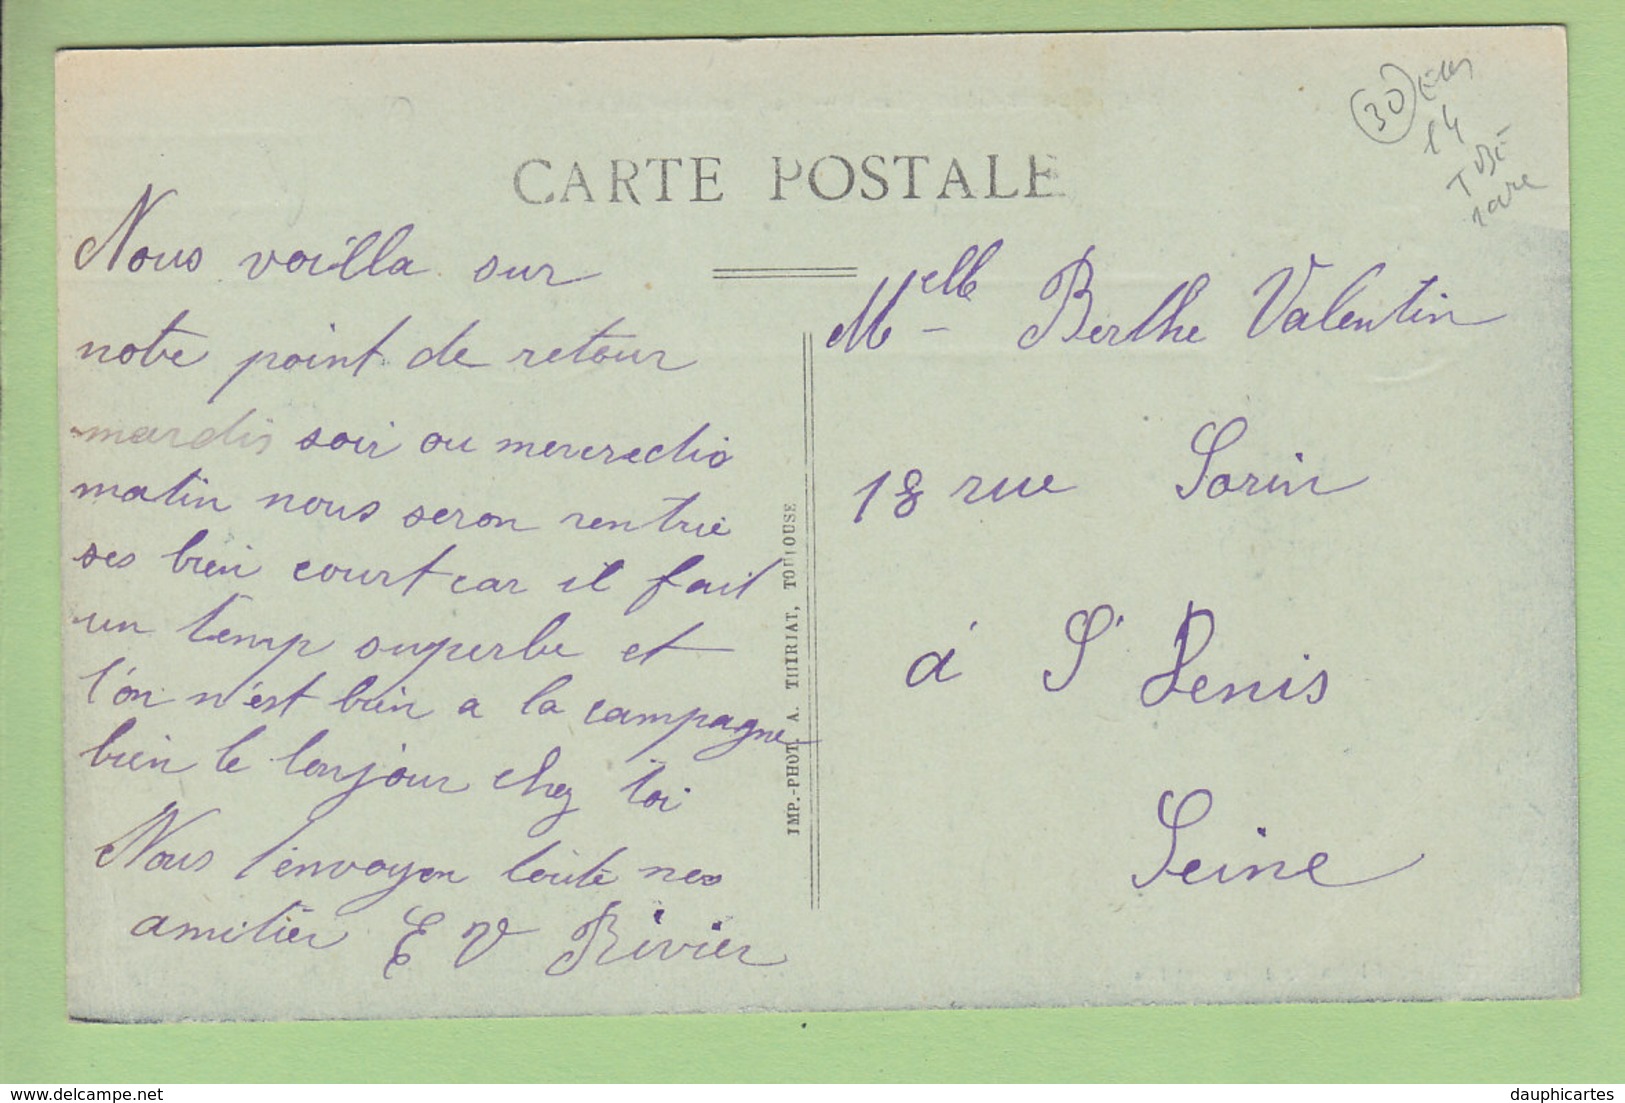 CARTE POSTALE
30
14
rare
Nous voilla sur
notre point de retour
mardis soir ou mercredis
matin nous seron rentrie
ses bien court car il fait
un temp superbe et
l'on n'est bien a la campagne
bien le bonjour chez toi
Nous t'envoyon toute nos
amitier E V Rivier
IMP.-PHOT. A. THIRIAT, TOULOUSE
Melle Berthe Valentin
18 rue Sorin
à St Denis
Seine
dauphicartes